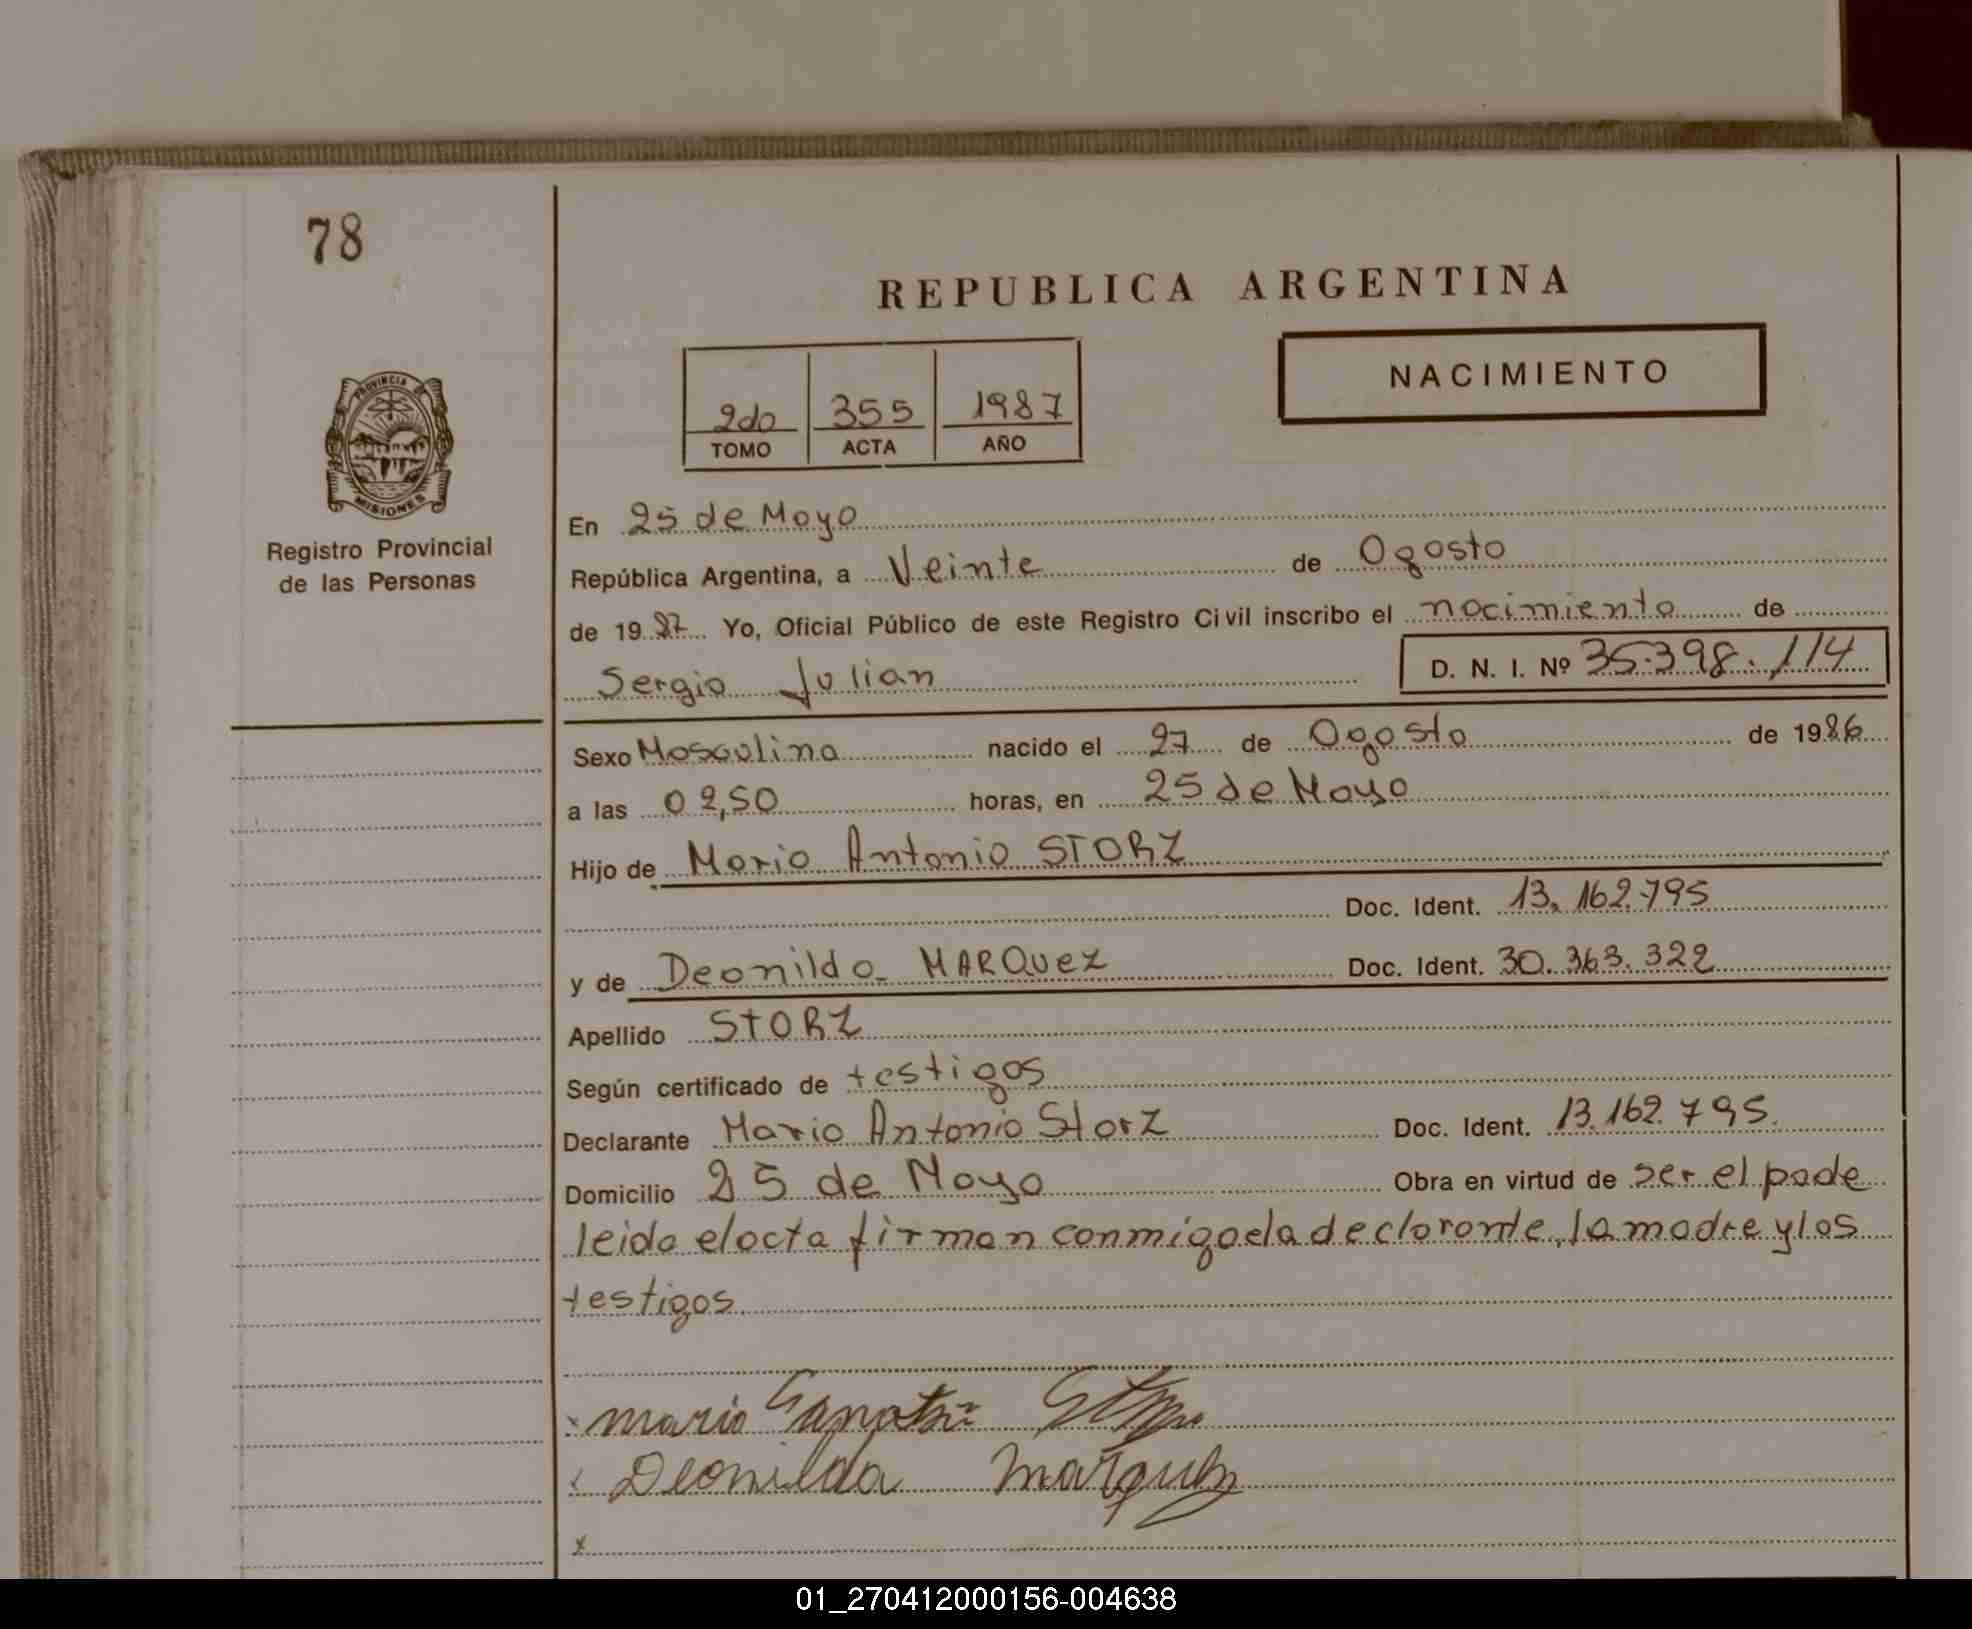 78
REPUBLICA ARGENTINA
NACIMIENTO
2do 355 1987
TOMO ACTA AÑO
PROVINCIA DE
MISIONES
Registro Provincial
de las Personas
En 25 de Mayo
República Argentina, a Veinte de Agosto
de 1987 Yo, Oficial Público de este Registro Civil inscribo el nacimiento de
Sergio Julian D. N. I. Nº 35.398.114
Sexo Masculino nacido el 27 de Agosto de 1986
a las 02,50 horas, en 25 de Mayo
Hijo de Mario Antonio STORZ
Doc. Ident. 13.162.795
y de Deonilda MARQUEZ Doc. Ident. 30.363.322
Apellido STORZ
Según certificado de testigos
Declarante Mario Antonio Storz Doc. Ident. 13.162.795.
Domicilio 25 de Mayo Obra en virtud de ser el pade
leida el acta firman conmigo el a declarante, la madre y los
testigos
x mario
Deonilda Marquez
x
01_270412000156-004638